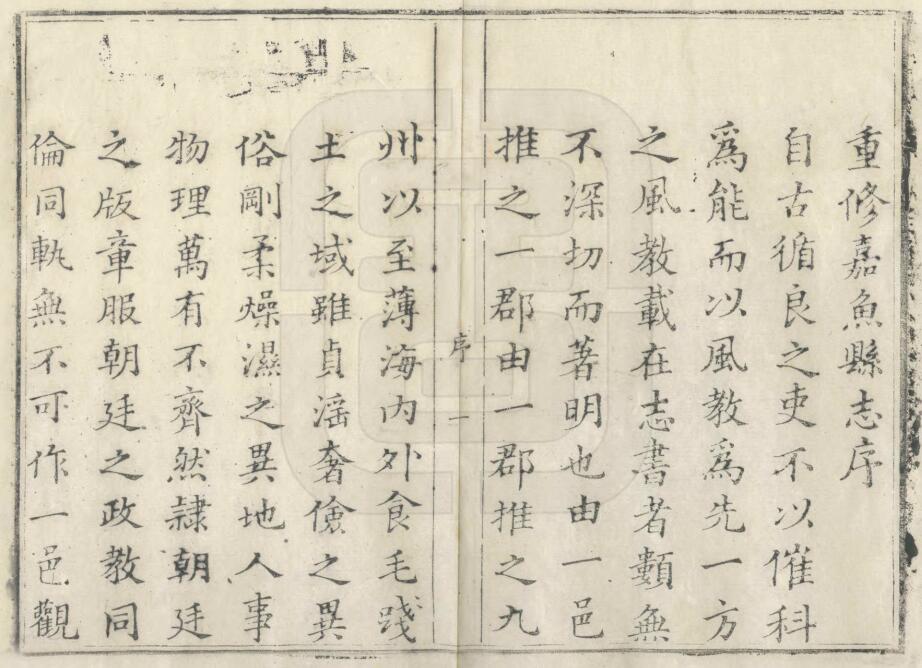 重修嘉魚縣志序
自古循良之吏不以催科
爲能而以風教爲先一方
之風教載在志書者類無
不深切而著明也由一邑
推之一郡由一郡推之九
序 一
州以至薄海内外食毛踐
土之域雖貞淫奢儉之異
俗剛柔燥濕之異地人事
物理萬有不齊然隷朝廷
之版章服朝廷之政教同
倫同軌無不可作一邑觀